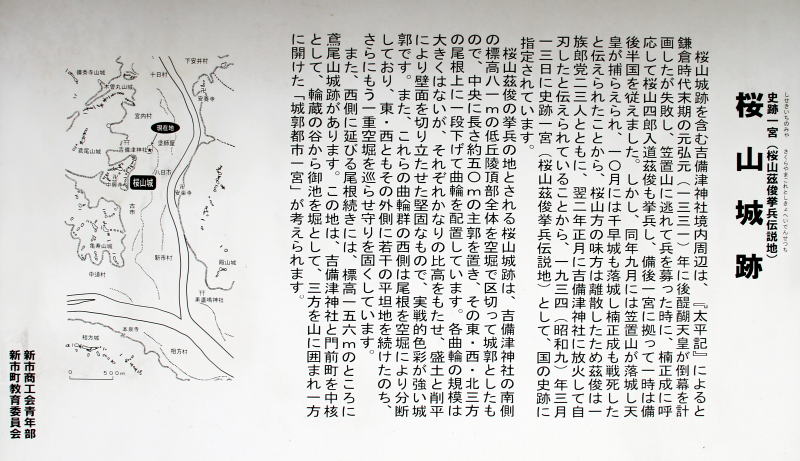 しせきいちのみや
さくらやまこれとしきょへいでんせつち
史跡一宮（桜山茲俊挙兵伝説地）
桜山城跡
桜山城跡を含む吉備津神社境内周辺は、『太平記』によると
鎌倉時代末期の元弘元（一三三一）年に後醍醐天皇が倒幕を計
画したが失敗し、笠置山に逃れて兵を募った時に、楠正成に呼
応して桜山四郎入道茲俊も挙兵し、備後一宮に拠って一時は備
後半国を従えました。しかし、同年九月には笠置山が落城し天
皇が捕らえられ、一〇月には千早城も落城し楠正成も戦死した
と伝えられたことから、桜山方の味方は離散したため茲俊は一
族郎党二三人とともに、翌二年正月に吉備津神社に放火して自
刃したと伝えられていることから、一九三四（昭和九）年三月
一三日に史跡一宮（桜山茲俊挙兵伝説地）として、国の史跡に
指定されています。
桜山茲俊の挙兵の地とされる桜山城跡は、吉備津神社の南側
の標高八一mの低丘陵頂部全体を空堀で区切って城郭としたも
ので、中央に長さ約五〇mの主郭を置き、その東・西・北三方
の尾根上に一段下げて曲輪を配置しています。各曲輪の規模は
大きくはないが、それぞれかなりの比高をもたせ、盛土と削平
により壁面を切り立たせた堅固なもので、実戦的色彩が強い城
郭です。また、これらの曲輪群の西側は尾根を空堀により分断
しており、東・西ともその外側に若干の平坦地を続けたのち、
さらにもう一重空堀を巡らせ守りを固くしています。
また、西側に延びる尾根続きには、標高一五六mのところに
鳶尾山城跡があります。この地は、吉備津神社と門前町を中核
として、輪蔵の谷から御池を堀として、三方を山に囲まれ一方
に開けた「城郭都市一宮」が考えられます。
下安井村
十日村
安養寺
木曽丸山城
宮内村
現在地
堂師屋
吉備津神社
鳶尾山城
八日市
桜山城
中興寺
安楽寺
古市
亀寿山城
新市村
殿山城
中須村
素盞嗚神社
本泉寺
相方城
相方村
0 500m
新市商工会青年部
新市町教育委員会